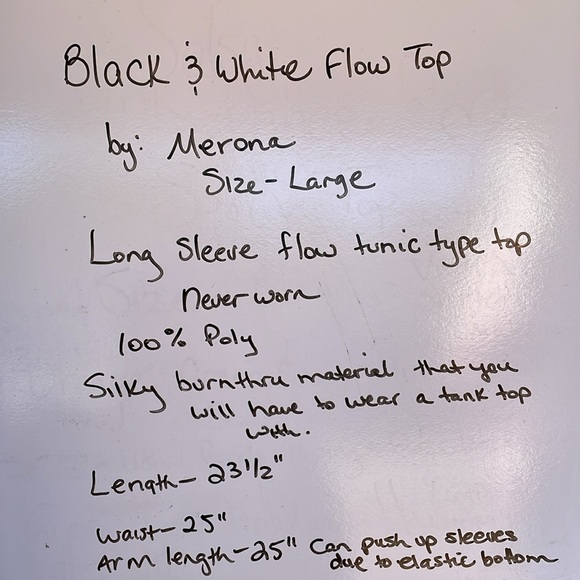 Black & White Flow Top
by: Merona
Size - Large
Long Sleeve flow tunic type top
never worn
100% Poly
Silky burnthru material that you
will have to wear a tank top
with.
Length - 23 1/2"
Waist - 25"
Arm length - 25" Can push up sleeves
due to elastic bottom